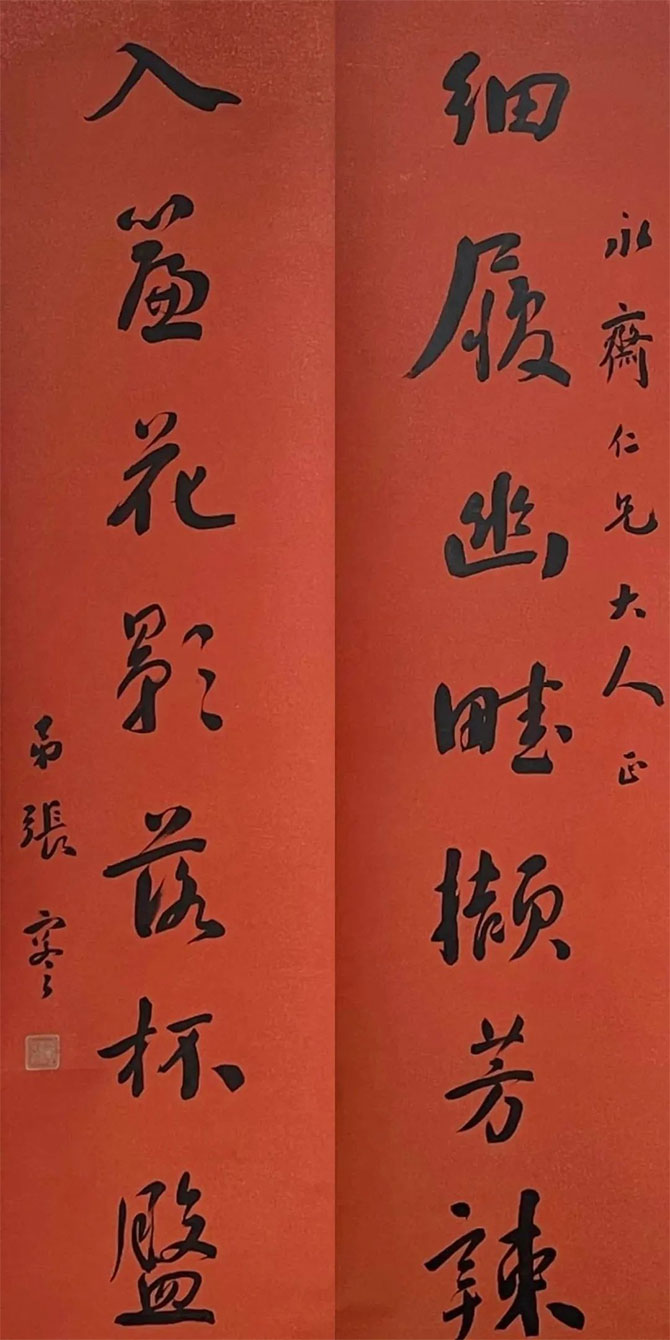 永齋仁兄大人正
細履幽畦擷芳辣
入簾花影落杯盤
弟張謇